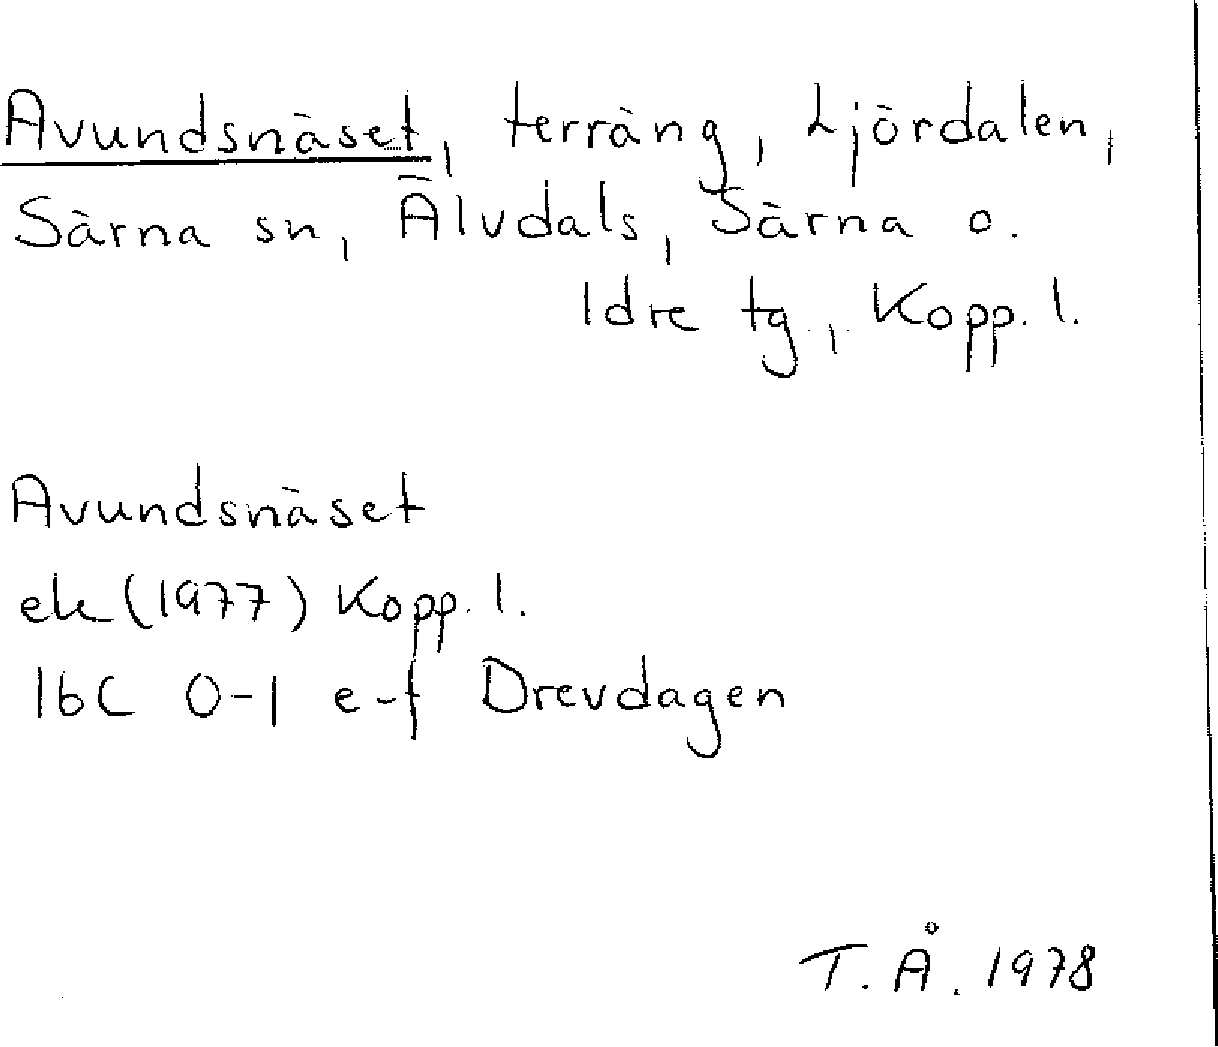 Avundsnäset, terräng, Ljördalen,
Särna sn, Älvdals, Särna o.
Idre tg., Kopp. l.
Avundsnäset
ek (1977) Kopp. l.
16C 0-1 e-f Drevdagen
T. Å. 1978